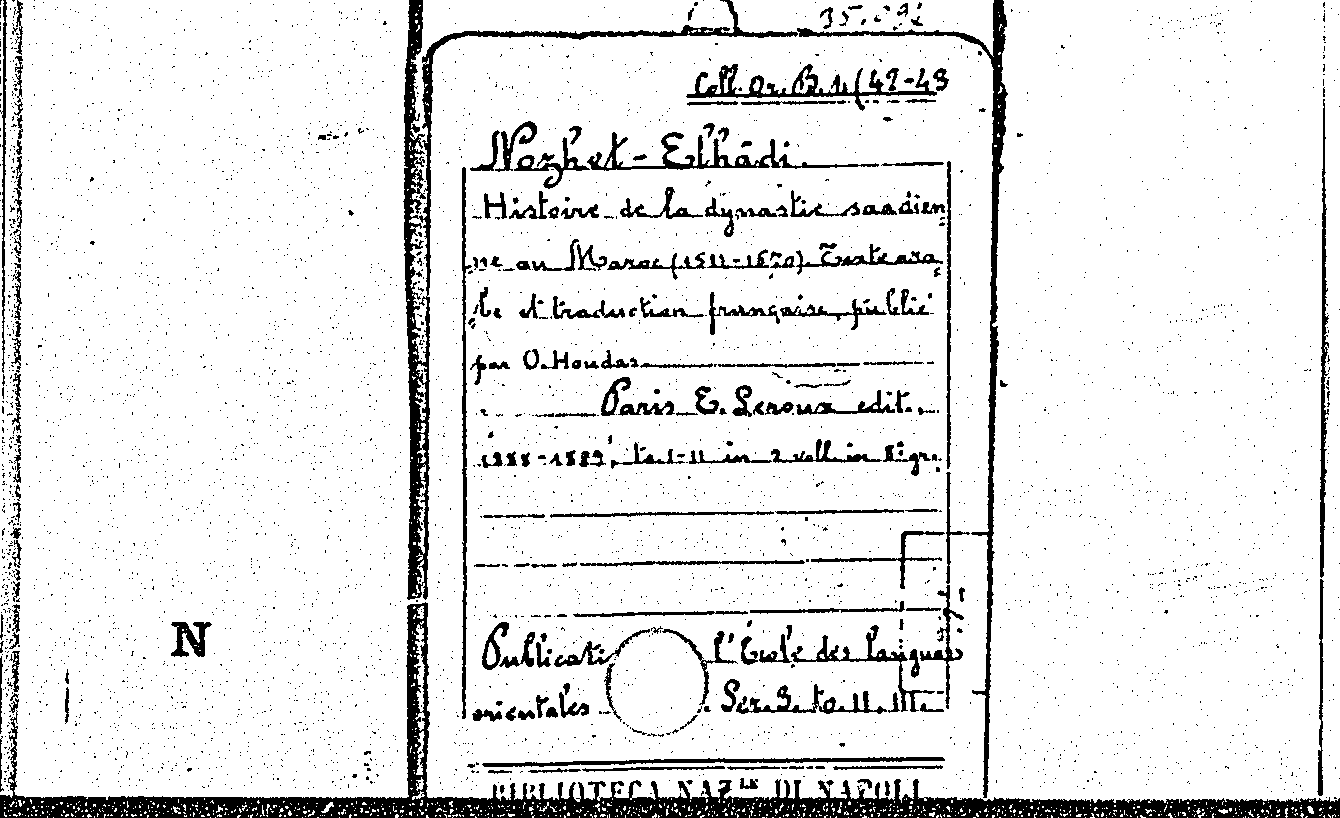 Coll. Or. B. 1. (42-43
Nozhet-Elhādi.
Histoire de la dynastie saadien
ne au Maroc (1511-1670). Texte ara
be et traduction française, publié
par O. Houdas
Paris E. Leroux edit.,
1888-1889, to. I-II in 2 voll. in 8° gr.
Publicati l'École des langues
orientales Ser. 3. to. II. III.
N
BIBLIOTECA NAZ.LE DI NAPOLI